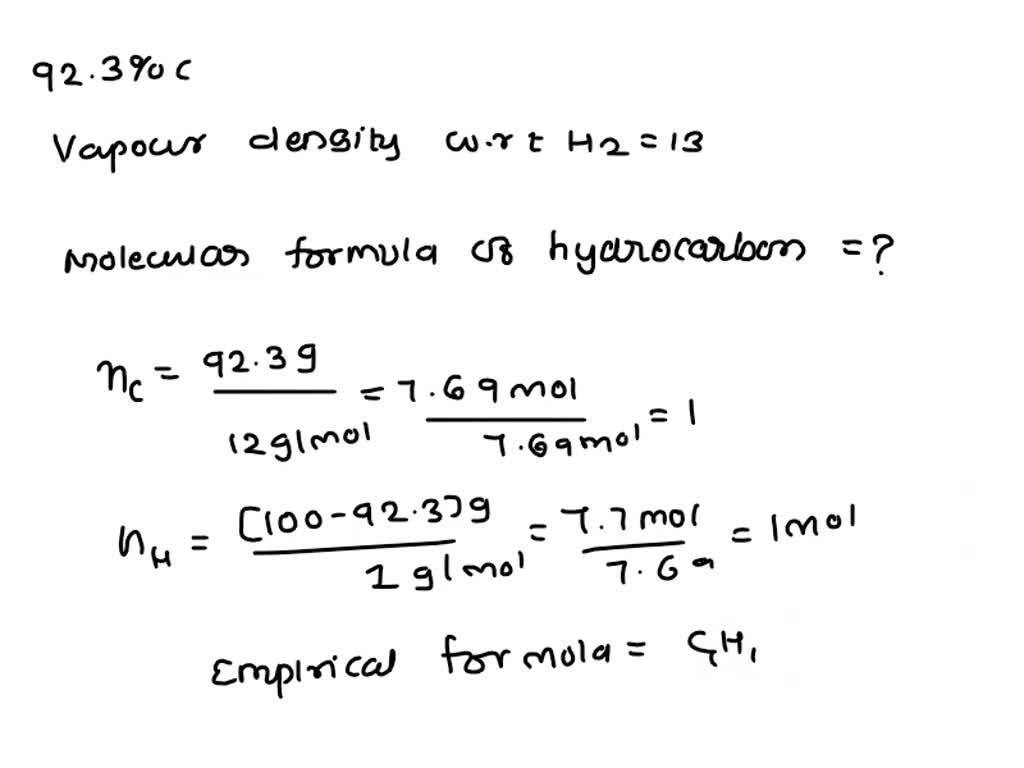 92.3% C
Vapour density w.r t H2 = 13
Molecular formula of hydrocarbon = ?
nC = 92.3 g / 12 g/mol = 7.69 mol / 7.69 mol = 1
nH = [100-92.3] g / 1 g/mol = 7.7 mol / 7.69 = 1 mol
Empirical formola = C1H1